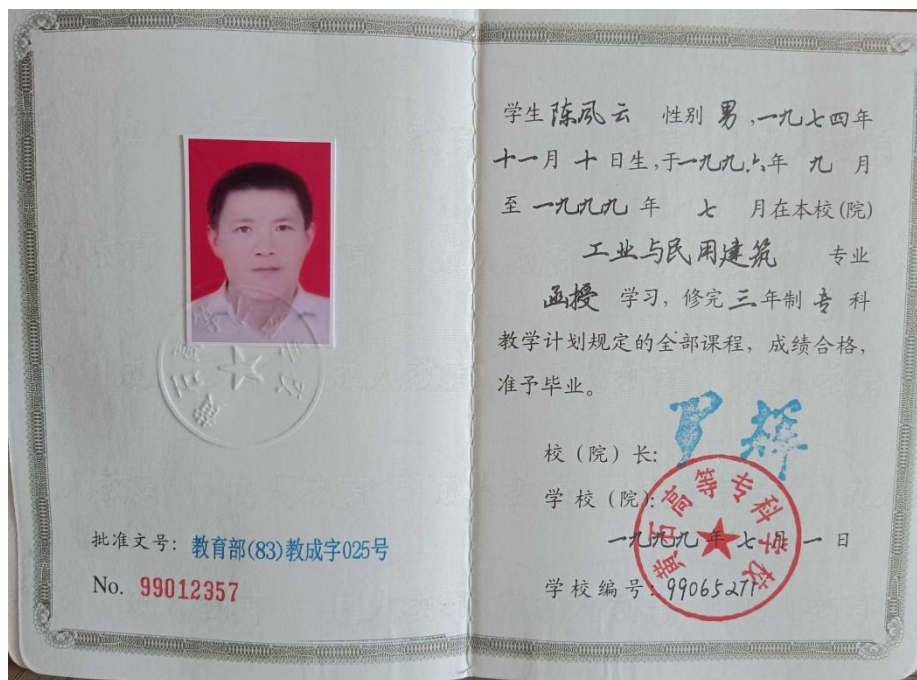 批准文号：教育部(83)教成字025号
No. 99012357
学生 陈风云 性别 男，一九七四年
十一月 十 日生，于一九九六年 九 月
至 一九九九 年 七 月在本校(院)
工业与民用建筑 专业
函授 学习，修完 三 年制 专 科
教学计划规定的全部课程，成绩合格，
准予毕业。
校（院）长：
学 校（院）：
黄石高等专科学校
一九九九 年 七 月 一 日
学校编号：99065271